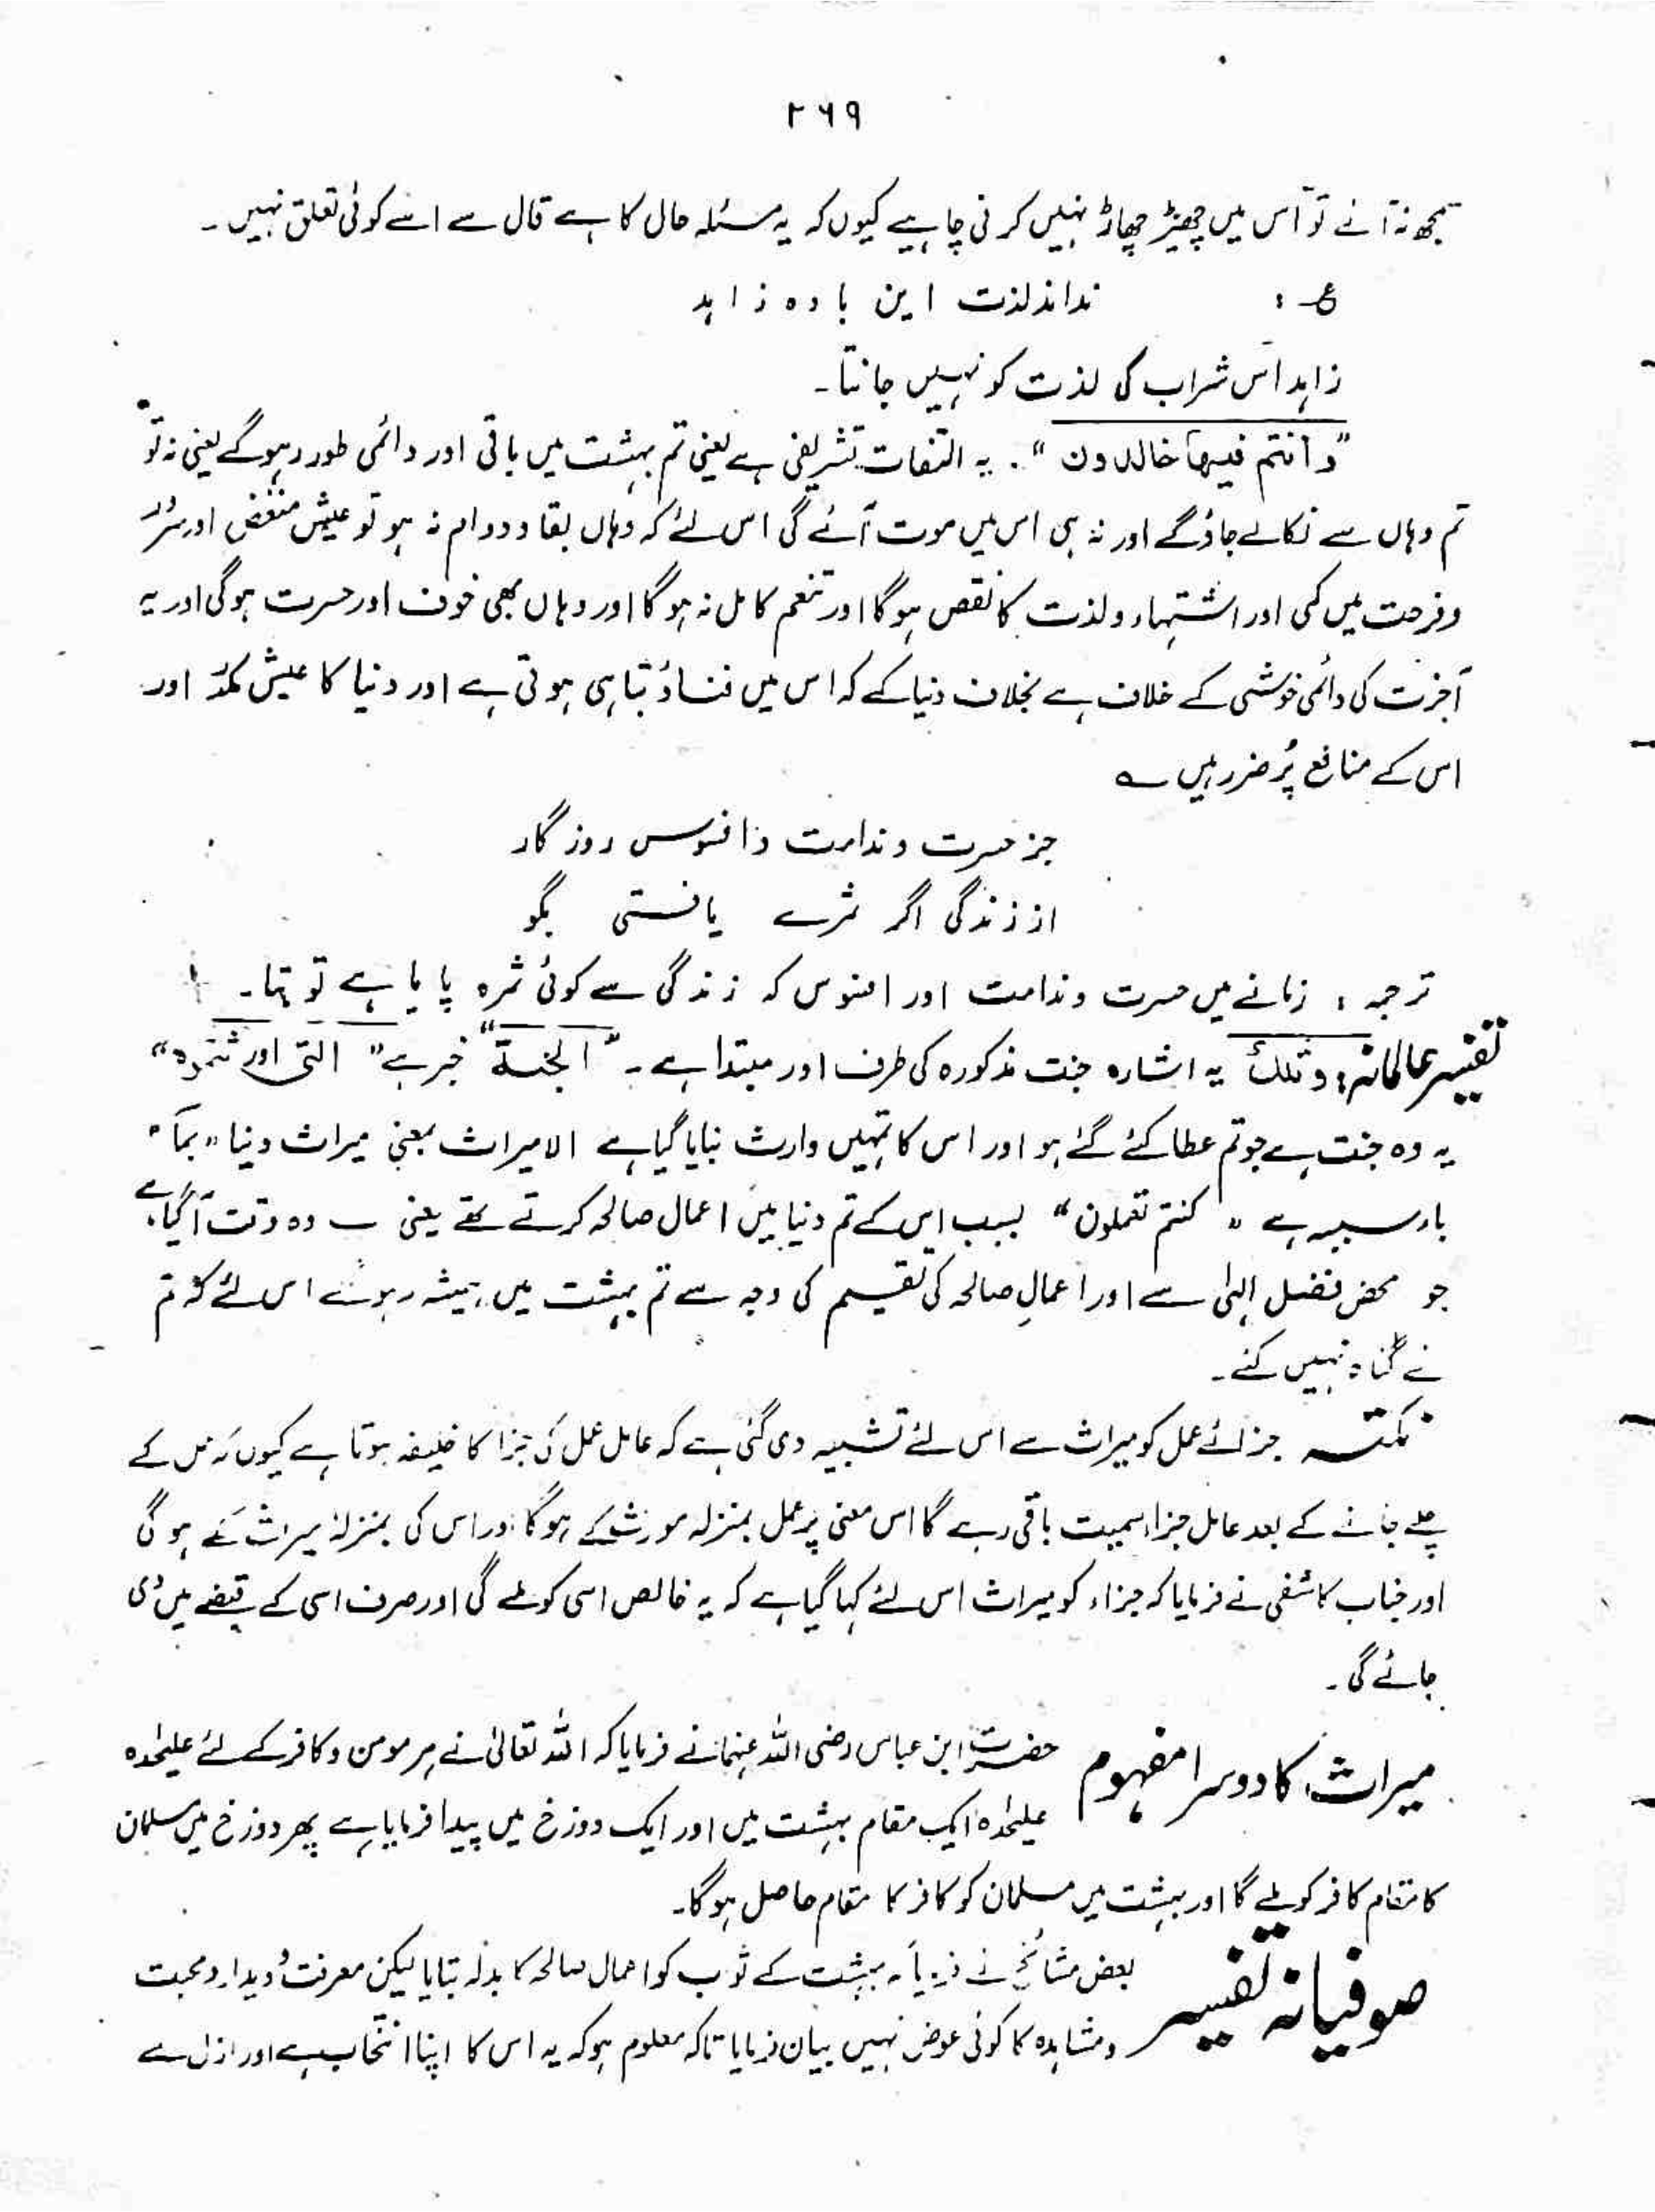 ۲۶۹
سمجھ نہ آئے تو اس میں چھیڑ چھاڑ نہیں کرنی چاہیے کیوں کہ یہ مسئلہ حال کا ہے قال سے اسے کوئی تعلق نہیں ۔
ع : نداند لذت این بادہ زاہد
زاہد اس شراب کی لذت کو نہیں جانتا ۔
”وانتم فیہا خالدون“ . یہ التفات تشریفی ہے یعنی تم بہشت میں باقی اور دائمی طور رہوگے یعنی نہ تو
تم وہاں سے نکالے جاؤ گے اور نہ ہی اس میں موت آئے گی اس لئے کہ وہاں بقا و دوام نہ ہو تو عیش منغض اور سرور
وفرحت میں کمی اور اشتہاء ولذت کا نقص ہوگا اور تنعم کامل نہ ہوگا اور وہاں بھی خوف اور حسرت ہوگی اور یہ
آخرت کی دائمی خوشی کے خلاف ہے بخلاف دنیا کے کہ اس میں فساد و تباہی ہوتی ہے اور دنیا کا عیش مکدر اور
اس کے منافع پُر ضرر ہیں ؎
جز حسرت و ندامت و افسوس روزگار
از زندگی اگر ثمرے یافتستی بگو
ترجمہ : زمانے میں حسرت وندامت اور افسوس کہ زندگی سے کوئی ثمرہ پایا ہے تو بتا ۔
تفسیر عالمانہ : وتلك یہ اشارہ جنت مذکورہ کی طرف اور مبتدا ہے ۔ ”الجنة“ خبر ہے ” التی اور ثتموہ“
یہ وہ جنت ہے جو تم عطا کئے گئے ہو اور اس کا تمہیں وارث بنایا گیا ہے الامیراث بمعنی میراث دنیا ” بما “
باء سببیہ ہے ” کنتم تعملون “ بسبب اس کے تم دنیا میں اعمال صالحہ کرتے تھے یعنی وہ وقت آگیا ہے
جو محض فضل الہٰی سے اور اعمالِ صالحہ کی تقسیم کی وجہ سے تم بہشت میں ہمیشہ رہوگے اس لئے کہ تم
نے گناہ نہیں کئے ۔
نکتہ جزائے عمل کو میراث سے اس لئے تشبیہ دی گئی ہے کہ عامل عمل کی جزا کا خلیفہ ہوتا ہے کیوں کہ عمل کے
چلے جانے کے بعد عامل جزاء سمیت باقی رہے گا اس معنی پر عمل بمنزلہ مورث کے ہوگا اور اس کی بمنزلہ میراث کے ہوگی
اور جناب کاشفی نے فرمایا کہ جزاء کو میراث اس لئے کہا گیا ہے کہ یہ خالص اسی کو ملے گی اور صرف اسی کے قبضے میں دی
جائے گی ۔
میراث کا دوسرا مفہوم حضرت ابن عباس رضی اللہ عنہما نے فرمایا کہ اللہ تعالیٰ نے ہر مومن وکافر کے لئے علیحٰدہ
علیحٰدہ ایک مقام بہشت میں اور ایک دوزخ میں پیدا فرمایا ہے پھر دوزخ میں مسلمان
کا مقام کافر کو ملے گا اور بہشت میں مسلمان کو کافر کا مقام حاصل ہوگا ۔
صوفیانہ تفسیر بعض مشائخ نے فرمایا کہ بہشت کے ثواب کو اعمال صالحہ کا بدلہ بتایا لیکن معرفت و دیدار و محبت
ومشاہدہ کا کوئی عوض نہیں بیان فرمایا تاکہ معلوم ہو کہ یہ اس کا اپنا انتخاب ہے اور ازل سے